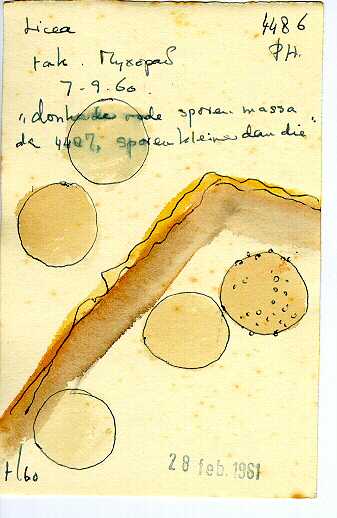 Licea 4486
tak. Myxopad PH.
7-9-60.
"donkerrode sporenmassa"
da 4487, sporen kleiner dan die
t/60
28 feb. 1961